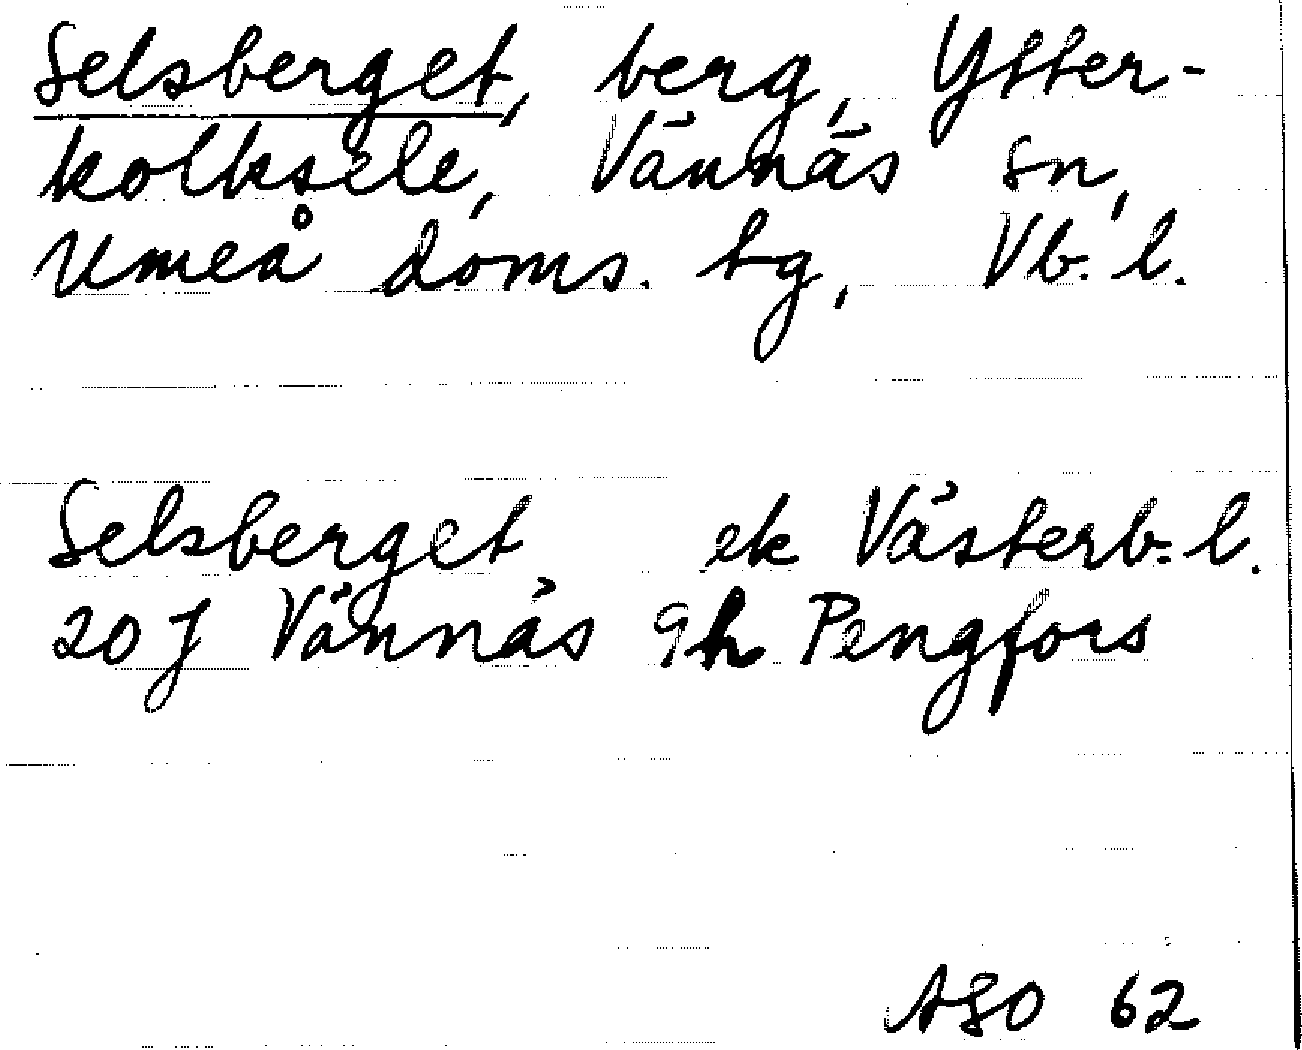 Selsberget, berg, Ytter-
kolksele, Vännäs sn,
Umeå doms. tg, Vb. l.
Selsberget ek Västerb. l.
20 J Vännäs 9h Pengfors
ASO 62